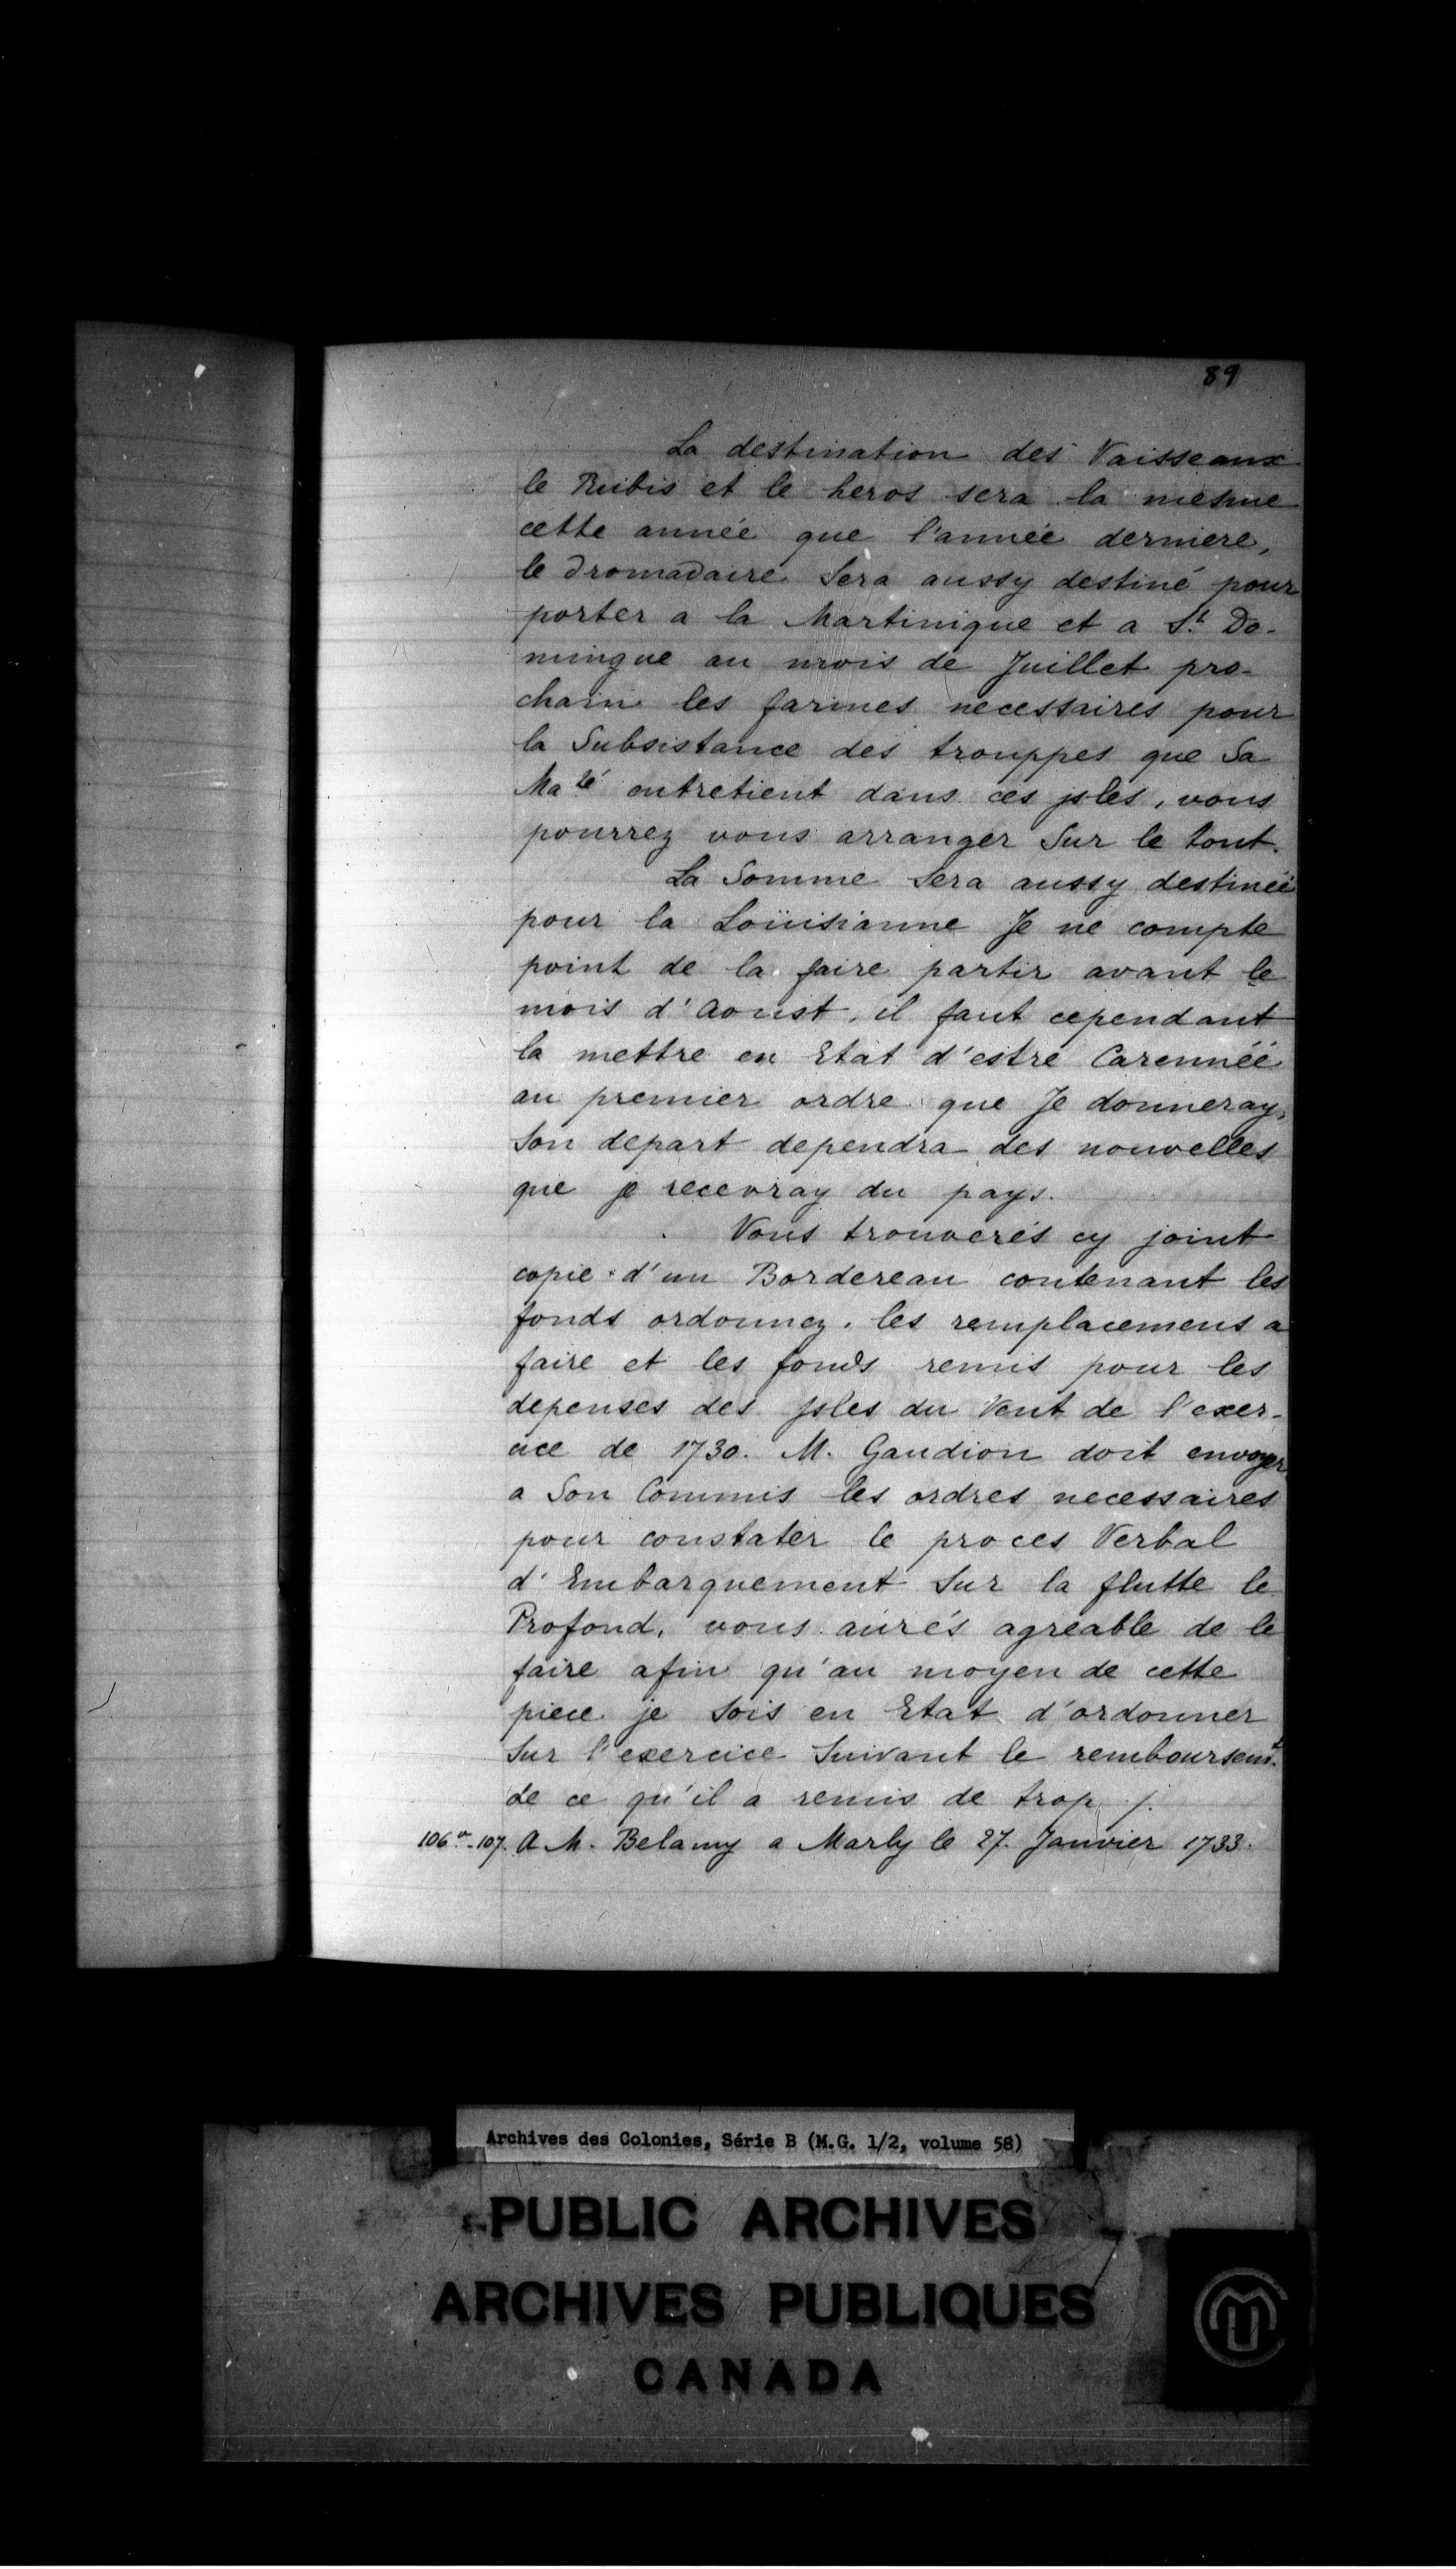 89
La destination des Vaisseaux
le Rubis et le heros sera la mesme
cette année que l'année derniere,
le Dromadaire Sera aussy destiné pour
porter a la Martinique et a St. Do-
mingue au mois de Juillet pro-
chain les farines necessaires pour
la Subsistance des trouppes que Sa
Maté entretient dans ces jsles, vous
pourrez vous arranger Sur le tout.
La Somme Sera aussy destinée
pour la Loüisianne Je ne compte
point de la faire partir avant le
mois d'Aoust, il faut cependant
la mettre en Etat d'estre Carennéé
au premier ordre que Je donneray,
Son depart dependra des nouvelles
que je recevray du pays.
Vous trouverés cy joint
copie d'un Bordereau contenant les
fonds ordonnez, les remplacemens a
faire et les fonds remis pour les
depenses des Jsles du Vent de l'exer-
cice de 1730. M. Gaudion doit envoyer
a Son Commis les ordres necessaires
pour constater le proces Verbal
d'Embarquement Sur la flutte le
Profond, vous aurés agreable de le
faire afin qu'au moyen de cette
piece je Sois en Etat d'ordonner
Sur l'exercice Suivant le remboursemt.
de ce qu'il a remis de trop ./.
106v-107. A M. Belamy a Marly le 27. Janvier 1733.
Archives des Colonies, Série B (M.G. 1/2, volume 58)
PUBLIC ARCHIVES
ARCHIVES PUBLIQUES
CANADA